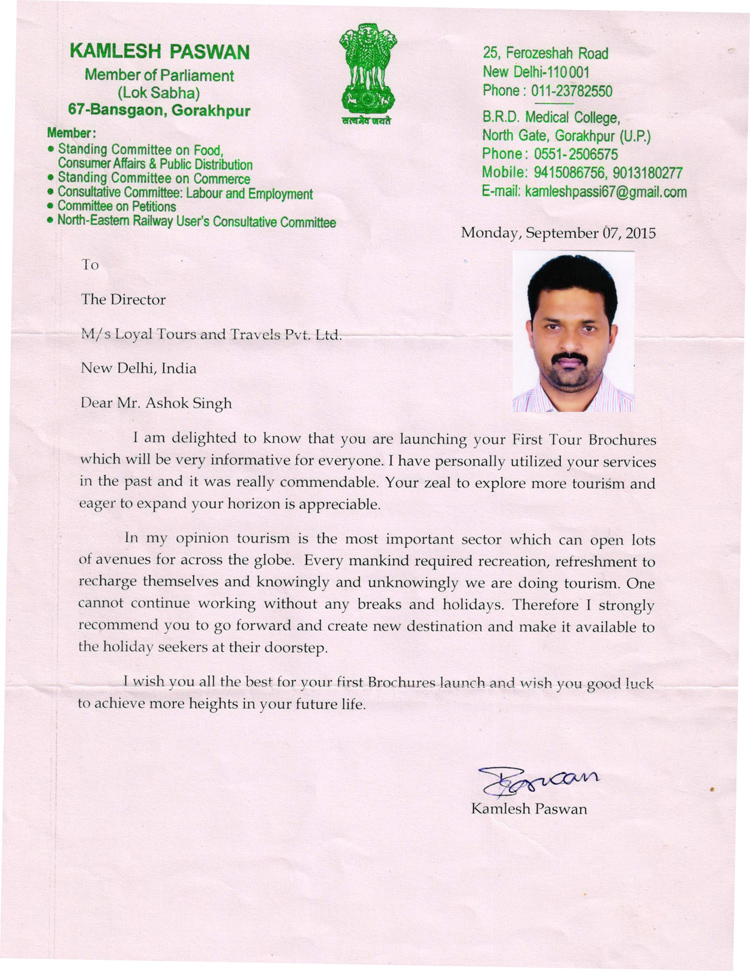 KAMLESH PASWAN
Member of Parliament
(Lok Sabha)
67-Bansgaon, Gorakhpur
Member:
• Standing Committee on Food,
Consumer Affairs & Public Distribution
• Standing Committee on Commerce
• Consultative Committee: Labour and Employment
• Committee on Petitions
• North-Eastern Railway User's Consultative Committee
सत्यमेव जयते
25, Ferozeshah Road
New Delhi-110 001
Phone : 011-23782550
B.R.D. Medical College,
North Gate, Gorakhpur (U.P.)
Phone : 0551- 2506575
Mobile: 9415086756, 9013180277
E-mail: kamleshpassi67@gmail.com
Monday, September 07, 2015
To
The Director
M/s Loyal Tours and Travels Pvt. Ltd.
New Delhi, India
Dear Mr. Ashok Singh
I am delighted to know that you are launching your First Tour Brochures
which will be very informative for everyone. I have personally utilized your services
in the past and it was really commendable. Your zeal to explore more tourism and
eager to expand your horizon is appreciable.
In my opinion tourism is the most important sector which can open lots
of avenues for across the globe. Every mankind required recreation, refreshment to
recharge themselves and knowingly and unknowingly we are doing tourism. One
cannot continue working without any breaks and holidays. Therefore I strongly
recommend you to go forward and create new destination and make it available to
the holiday seekers at their doorstep.
I wish you all the best for your first Brochures launch and wish you good luck
to achieve more heights in your future life.
Kamlesh Paswan